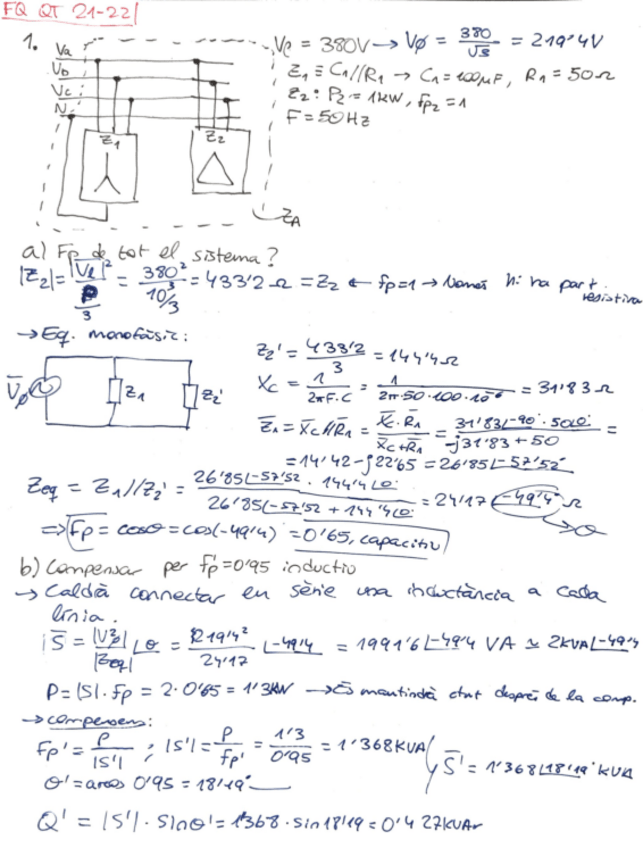 FQ QT 21-22
1.
Va
Vb
Vc
N
Z1
Z2
ZA
Vl = 380V → VØ = 380/√3 = 219'4V
Z1 ≡ C1//R1 → C1 = 100μF, R1 = 50Ω
Z2: P2 = 1kW, fp2 = 1
F = 50Hz
a) Fp de tot el sistema?
|Z2| = |Vl|²/(P/3) = 380²/(10³/3) = 433'2 Ω = Z2 ← fp=1 → Només hi ha part resistiva
→ Eq. monofàsic:
V̄ø
Z1
Z2'
Z2' = 433'2/3 = 144'4Ω
Xc = 1/(2πF·C) = 1/(2π·50·100·10⁻⁶) = 31'83 Ω
Z̄1 = X̄c//R̄1 = (X̄c·R̄1)/(X̄c+R̄1) = (31'83∠-90°·50∠0°)/(-j31'83 + 50) =
= 14'42 - j22'65 = 26'85∠-57'52°
Zeq = Z1//Z2' = (26'85∠-57'52 · 144'4∠0°)/(26'85∠-57'52 + 144'4∠0°) = 24'17∠-49'4° Ω
⇒ Fp = cosθ = cos(-49'4) = 0'65, capacitiu
θ
b) Compensar per fp'=0'95 inductiu
→ Caldrà connectar en sèrie una inductància a cada
línia.
S̄ = |Vø²|/|Zeq| ∠θ = 219'4²/24'17 ∠-49'4 = 1991'6∠-49'4 VA ≃ 2kVA∠-49'4
P = |S|·fp = 2·0'65 = 1'3kW → Es mantindrà ctnt després de la comp.
→ compensem:
Fp' = P/|S'| ; |S'| = P/fp' = 1'3/0'95 = 1'368KVA
θ' = arcos 0'95 = 18'19°
S̄' = 1'368∠18'19° KVA
Q' = |S'| · sinθ' = 1'368 · sin18'19 = 0'427KVAr